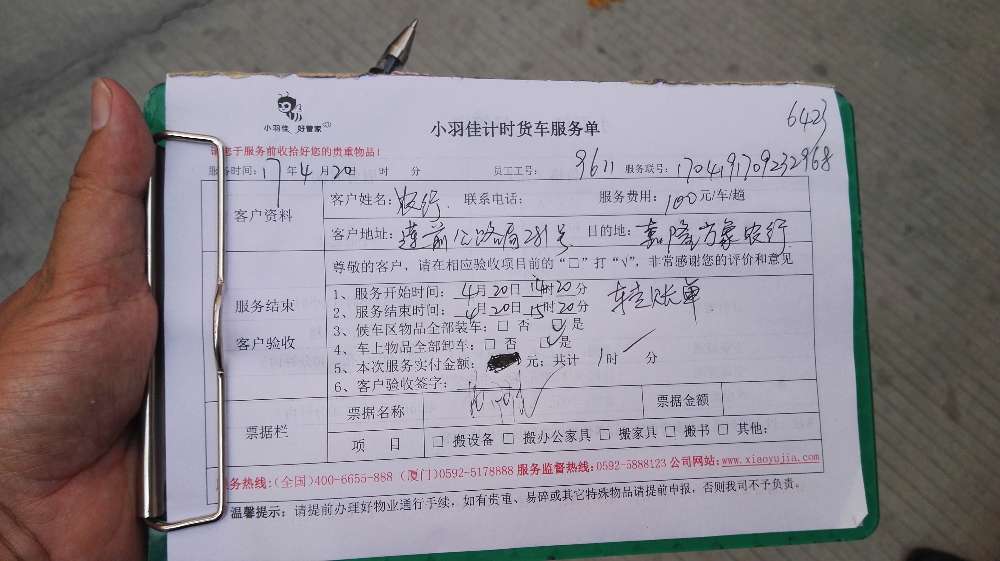 小羽佳 好管家
小羽佳计时货车服务单
6423
请您于服务前收拾好您的贵重物品!
服务时间: 17 年 4 月 20 日 时 分 员工工号: 9611 服务联号: 1704191709232968
客户资料
客户姓名: 农行. 联系电话: 服务费用: 100 元/车/趟
客户地址: 莲前公路局281号 目的地: 嘉隆万象农行
服务结束
客户验收
尊敬的客户, 请在相应验收项目前的“□”打“√”, 非常感谢您的评价和意见
1、服务开始时间: 4月20日14时20分 转账单
2、服务结束时间: 4月20日15时20分
3、候车区物品全部装车: □ 否 ☑ 是
4、车上物品全部卸车: □ 否 ☑ 是
5、本次服务实付金额: 元; 共计 1时 分
6、客户验收签字:
票据栏
票据名称 票据金额
项 目 □ 搬设备 □ 搬办公家具 □ 搬家具 □ 搬书 □ 其他:
服务热线:(全国)400-6655-888 (厦门)0592-5178888 服务监督热线:0592-5888123 公司网站:www.xiaoyujia.com
温馨提示: 请提前办理好物业通行手续, 如有贵重、易碎或其它特殊物品请提前申报, 否则我司不予负责。